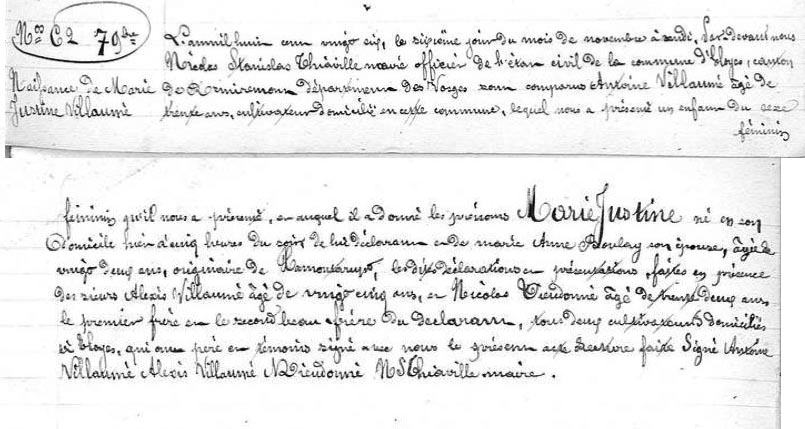 Nos C2 79bre
L'an mil huit cent vingt six, le sixième jour du mois de novembre à midi, Par devant nous
Nicolas Stanislas Thiaville maire officier de l'état civil de la commune d'Eloyes, canton
Naissance de Marie
de Remiremont département des Vosges sont comparus Antoine Villaumé âgé de
Justine Villaumé
trente ans, cultivateur domicilié en cette commune, lequel nous a présenté un enfant du sexe
féminin
féminin qu'il nous a présenté, et auquel il a donné les prénoms Marie Justine né en son
domicile hier à cinq heures du soir de lui déclarant et de marie Anne Boulay son épouse, âgée de
vingt deux ans, originaire de, les dites déclarations et présentations, faites en présence
des sieurs Alexis Villaumé âgé de vingt cinq ans, et Nicolas Dieudonné âgé de trente deux ans
le premier frère et le second beau frère du déclarant, tous deux cultivateurs domiciliés
à Eloyes, qui ont père et témoins signé avec nous le présent acte lecture faite Signé Antoine
Villaumé Alexis Villaumé N Dieudonné NSThiaville maire.